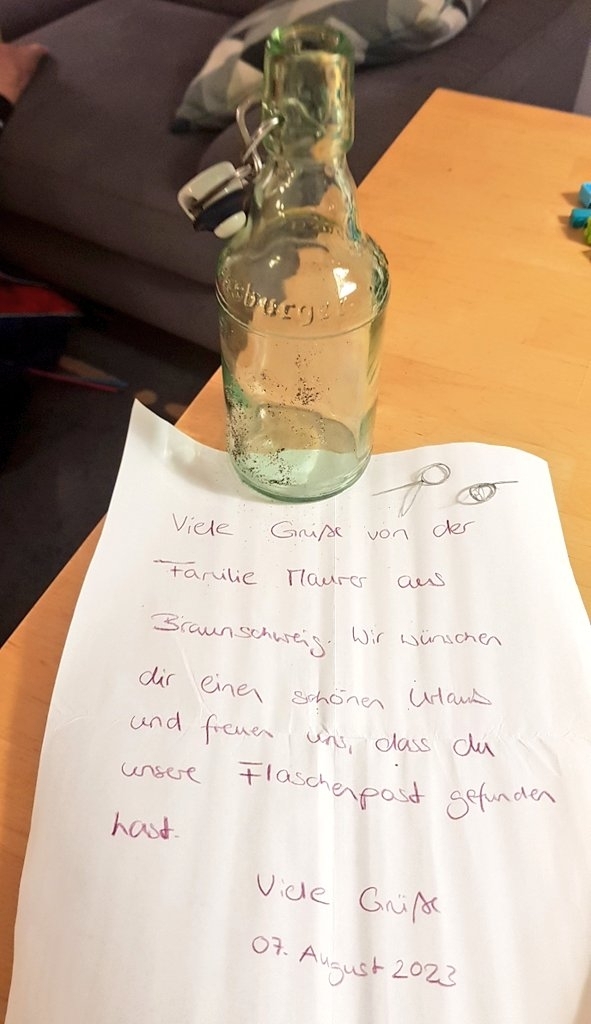 sburger
Viele Grüße von der
Familie Maurer aus
Braunschweig. Wir wünschen
dir einen schönen Urlaub
und freuen uns, dass du
unsere Flaschenpost gefunden
hast.
Viele Grüße
07. August 2023